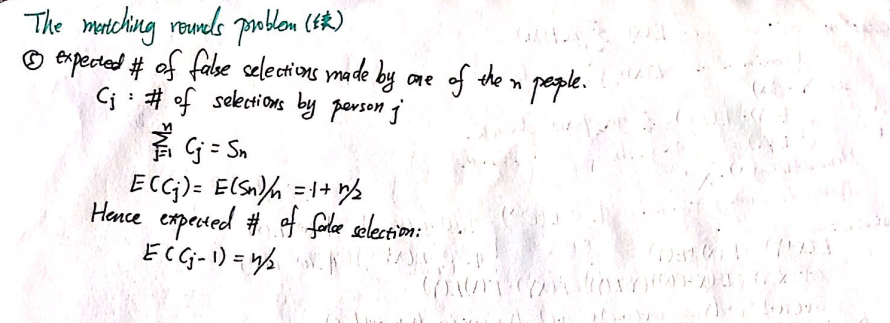 The matching rounds problem (续)
⑤ expected # of false selections made by one of the n people.
Cj : # of selections by person j
∑_{j=1}^{n} Cj = Sn
E(Cj) = E(Sn)/n = 1 + n/2
Hence expected # of false selection:
E(Cj - 1) = n/2